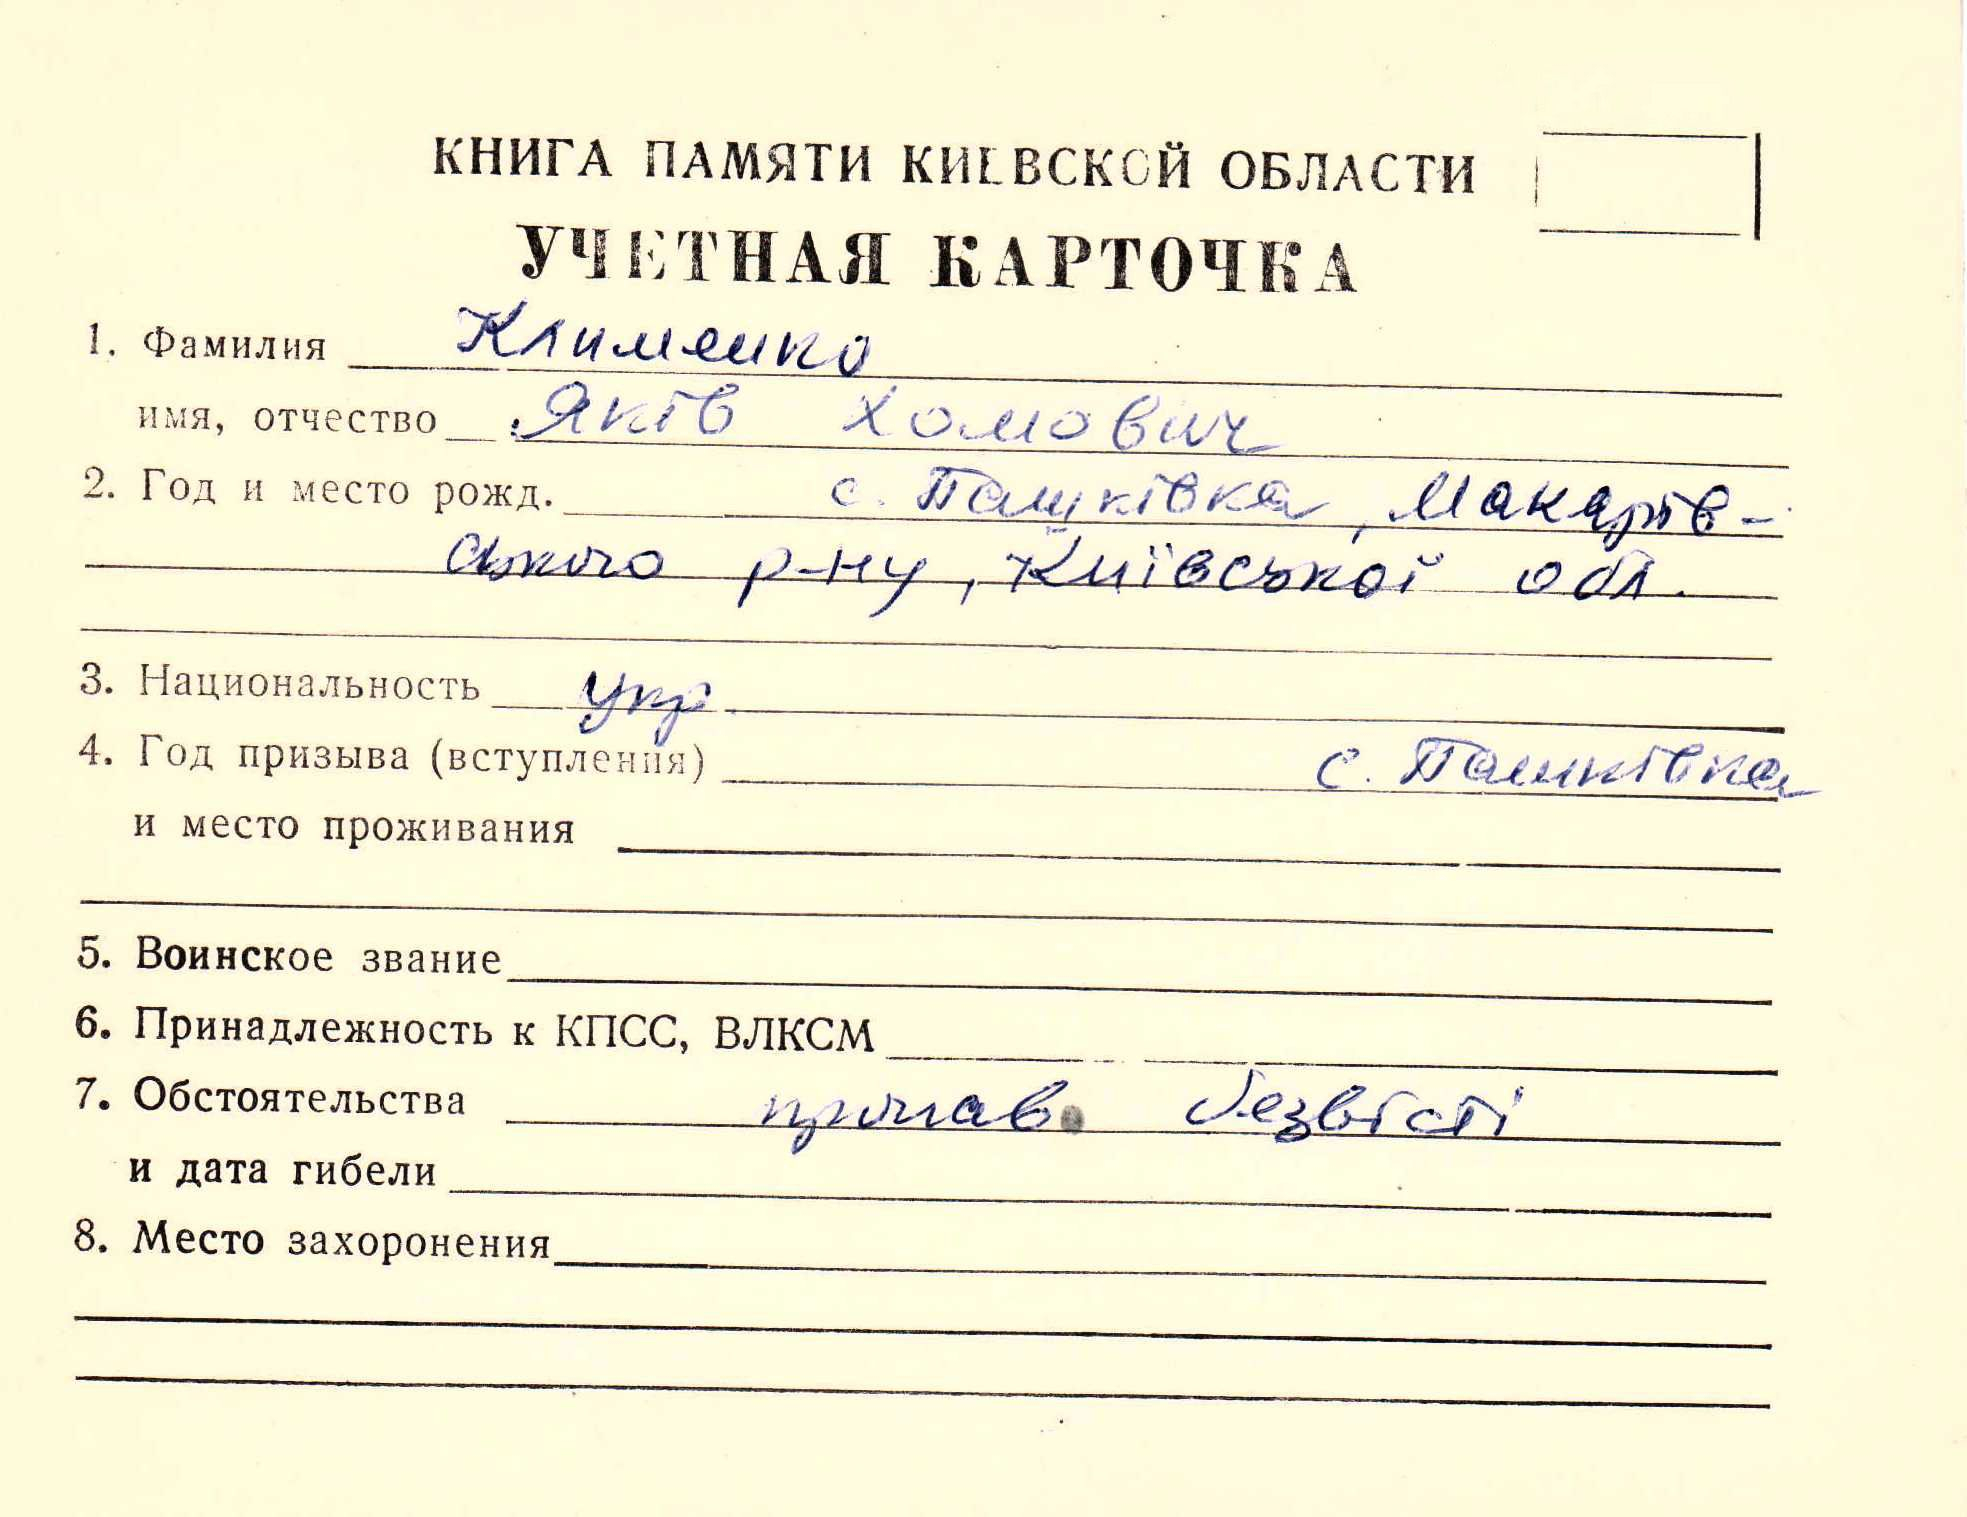 КНИГА ПАМЯТИ КИЕВСКОЙ ОБЛАСТИ
УЧЕТНАЯ КАРТОЧКА
1. Фамилия Клименко
имя, отчество Яків Хомович
2. Год и место рожд. с. Пашківка, Макарів-
ського р-ну, Київської обл.
3. Национальность укр.
4. Год призыва (вступления) с. Пашківка
и место проживания
5. Воинское звание
6. Принадлежность к КПСС, ВЛКСМ
7. Обстоятельства пропав безвісті
и дата гибели
8. Место захоронения